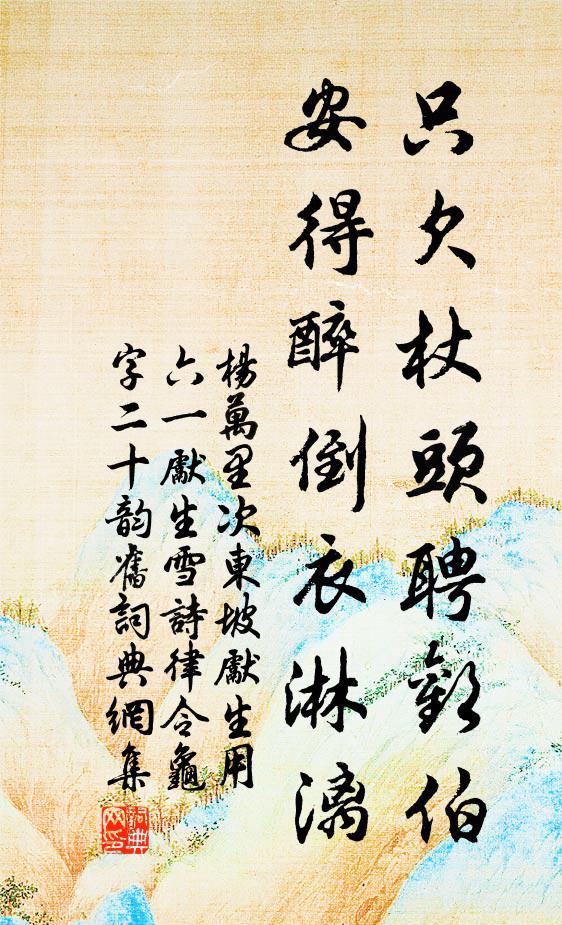 只欠杖頭聘歡伯
安得醉倒衣淋漓
楊萬里次東坡獻生用
六一獻生雪詩律令龜
字二十韵舊詞典網集
詞典
网印